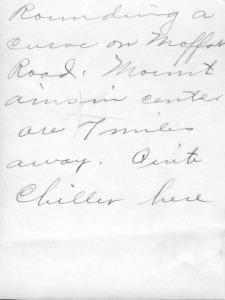 Rounding a
curve on Moffat
Road. Mount
ains in center
are 7 miles
away. Quite
Chilley here